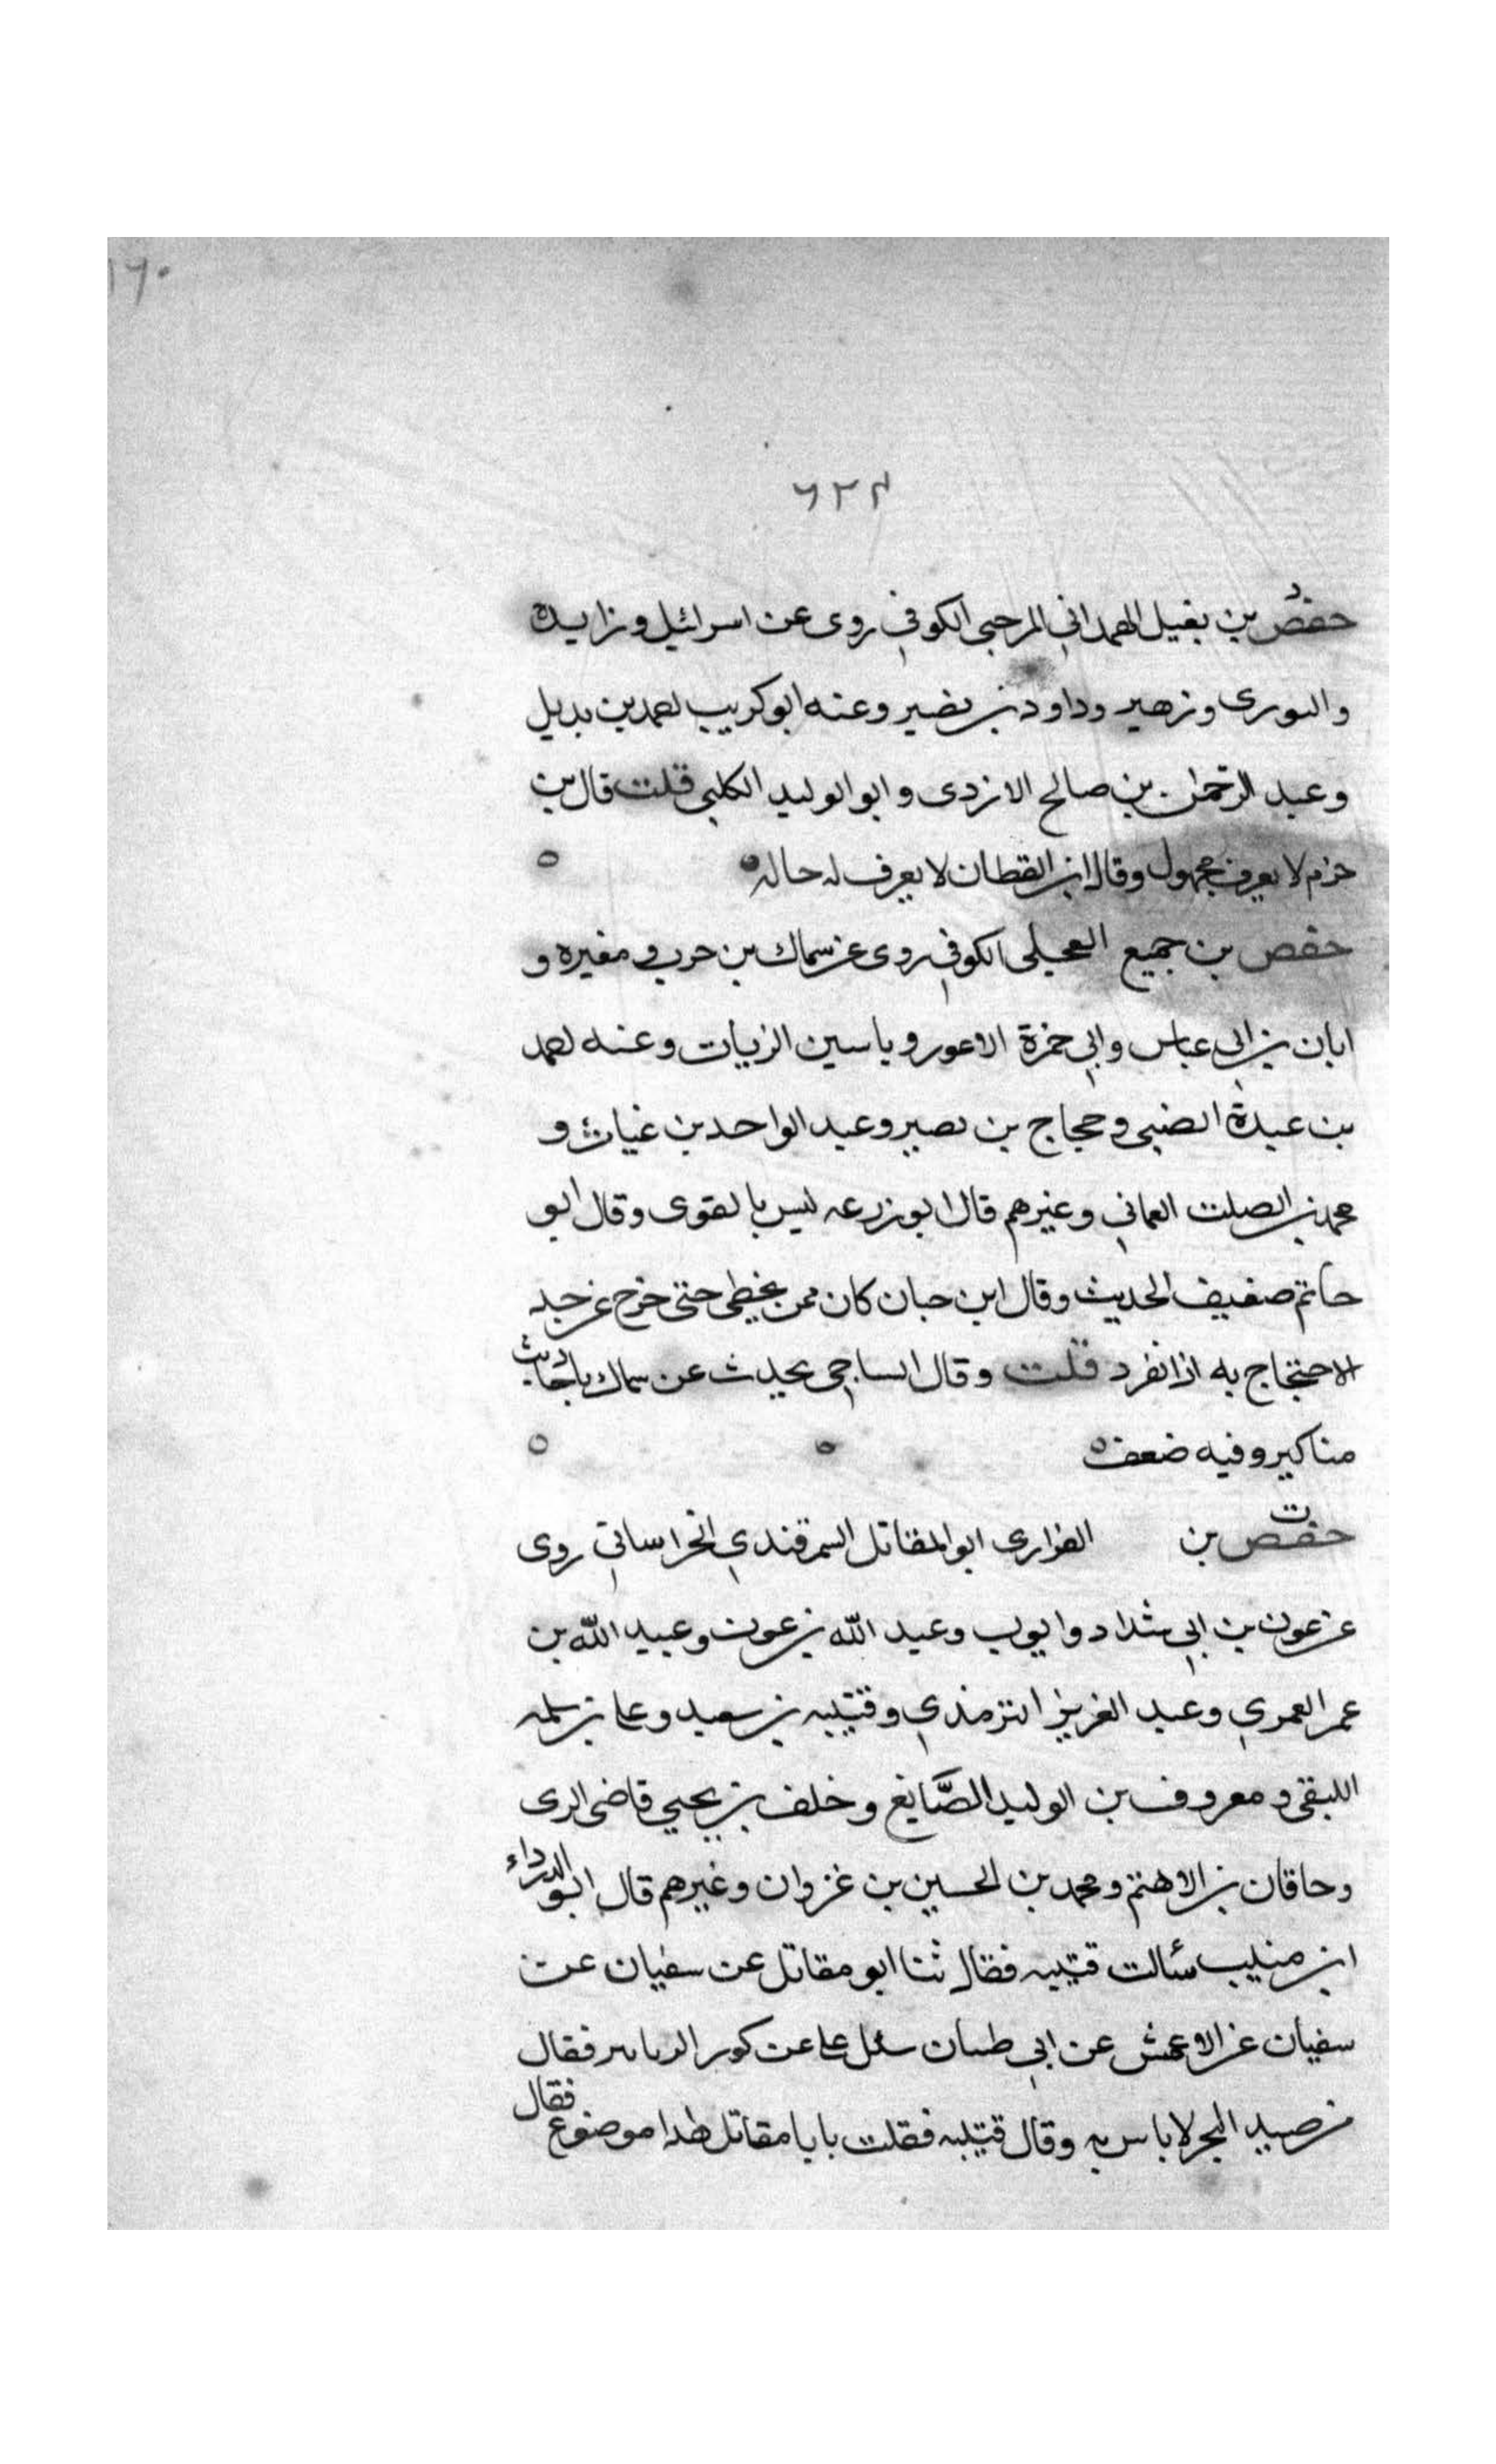 ١٦٠
٦٢٢
د
حفص بن بغيل الهمداني المرحبي الكوفي روى عن اسرائيل وزايدة
والثورى وزهير وداود بن نصير وعنه ابو كريب احمد بن بديل
وعبد الرحمن بن صالح الازدى وابو الوليد الكلبي قلت قال بن
حزم لا يعرف مجهول وقال ابن القطان لا يعرف له حاله ٥ ٥
حفص بن جميع العجلى الكوفي روى عن سماك بن حرب ومغيره و
ابان بن ابي عباس وابي حمزة الاعور وياسين الزيات وعنه احمد
بن عبدة الضبي وحجاج بن نصير وعبد الواحد بن غياث و
محمد بن الصلت العماني وغيرهم قال ابو زرعه ليس بالقوى وقال ابو
حاتم ضعيف الحديث وقال ابن حبان كان ممن يخطى حتى خرج عن حد
الاحتجاج به اذا انفرد قلت وقال الساجى يحدث عن سماك باحاديث
مناكير وفيه ضعف ٥ ٥ ٥
ت
حفص بن الفزارى ابو المقاتل السمرقندي الخراساني روى
عن عون بن ابي شداد وايوب وعبد الله بن عون وعبيد الله بن
عمر العمري وعبد العزيز الترمذي وقتيبه بن سعيد وعلى بن سلمه
اللبقى ومعروف بن الوليد الصَّايغ وخلف بن يحيي قاضى الرى
وحاقان بن الاهتم ومحمد بن الحسين بن غزوان وغيرهم قال ابو الدرداء
ابن منيب سألت قتيبه فقال ثنا ابو مقاتل عن سفيان عن
سفيان عن الاعمش عن ابي ظبيان سئل على عن كور الزنابير فقال
من صيد البحر لا باس به وقال قتيبه فقلت يا با مقاتل هذا موضوع فقال